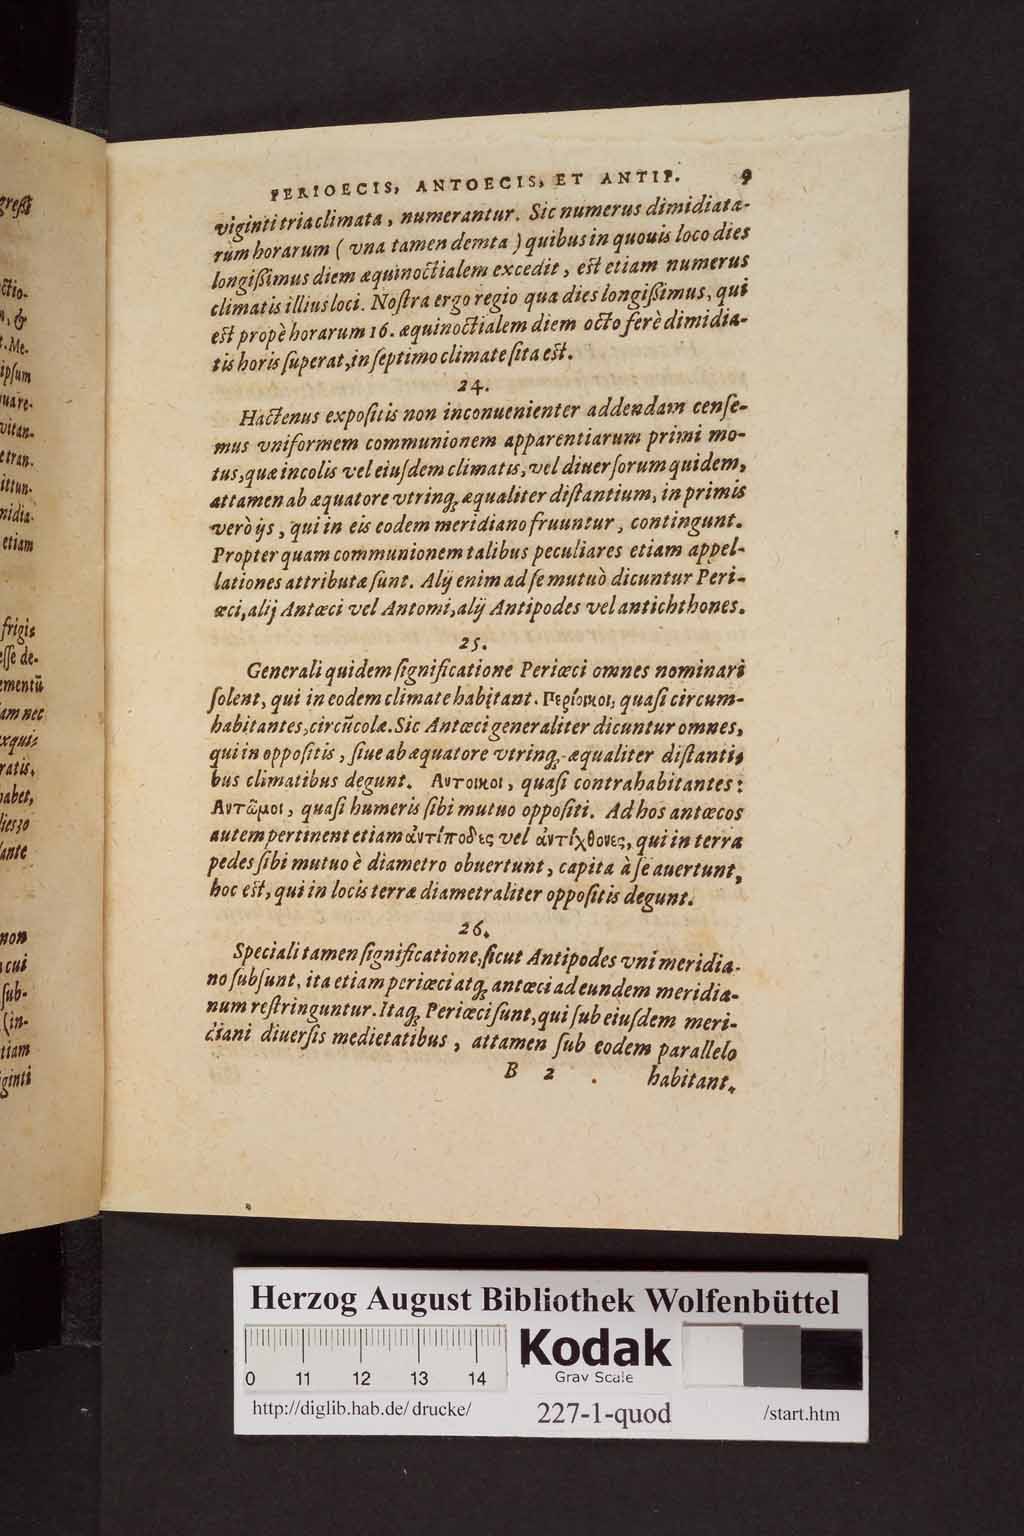 PERIOECIS, ANTOECIS, ET ANTIP. 9
viginti tria climata, numerantur. Sic numerus dimidiata-
rum horarum ( vna tamen demta ) quibus in quouis loco dies
longißimus diem æquinoctialem excedit, est etiam numerus
climatis illius loci. Nostra ergo regio qua dies longißimus, qui
est propè horarum 16. æquinoctialem diem octo ferè dimidia-
tis horis superat, in septimo climate sita est.
24.
Hactenus expositis non inconuenienter addendam cense-
mus vniformem communionem apparentiarum primi mo-
tus, quæ incolis vel eiusdem climatis, vel diuersorum quidem,
attamen ab æquatore vtrinq; æqualiter distantium, in primis
verò ijs, qui in eis eodem meridiano fruuntur, contingunt.
Propter quam communionem talibus peculiares etiam appel-
lationes attributæ sunt. Alij enim ad se mutuò dicuntur Peri-
œci, alij Antœci vel Antomi, alij Antipodes vel antichthones.
25.
Generali quidem significatione Periœci omnes nominari
solent, qui in eodem climate habitant. Περίοικοι, quasi circum-
habitantes, circũcolæ. Sic Antœci generaliter dicuntur omnes,
qui in oppositis, siue ab æquatore vtrinq; æqualiter distanti-
bus climatibus degunt. Αντοικοι, quasi contrahabitantes:
Αντῶμοι, quasi humeris sibi mutuo oppositi. Ad hos antœcos
autem pertinent etiam ἀντίποδες vel ἀντίχθονες, qui in terra
pedes sibi mutuo è diametro obuertunt, capita à se auertunt,
hoc est, qui in locis terræ diametraliter oppositis degunt.
26.
Speciali tamen significatione, sicut Antipodes vni meridia-
no subsunt, ita etiam periœci atq; antœci ad eundem meridia-
num restringuntur. Itaq; Periœci sunt, qui sub eiusdem meri-
diani diuersis medietatibus, attamen sub eodem parallelo
B 2 habitant.
greßi
ctio-
n, &
t. Me-
ipsum
quare-
vitan-
etran-
ittun-
midia-
etiam
frigi-
esse de-
ementũ
iam nec
exqui-
ratis,
habet,
dies 30
ante
non
cui
sub-
(in-
tiam
iginti
Herzog August Bibliothek Wolfenbüttel
0 11 12 13 14
Kodak
Gray Scale
http://diglib.hab.de/ drucke/ 227-1-quod /start.htm